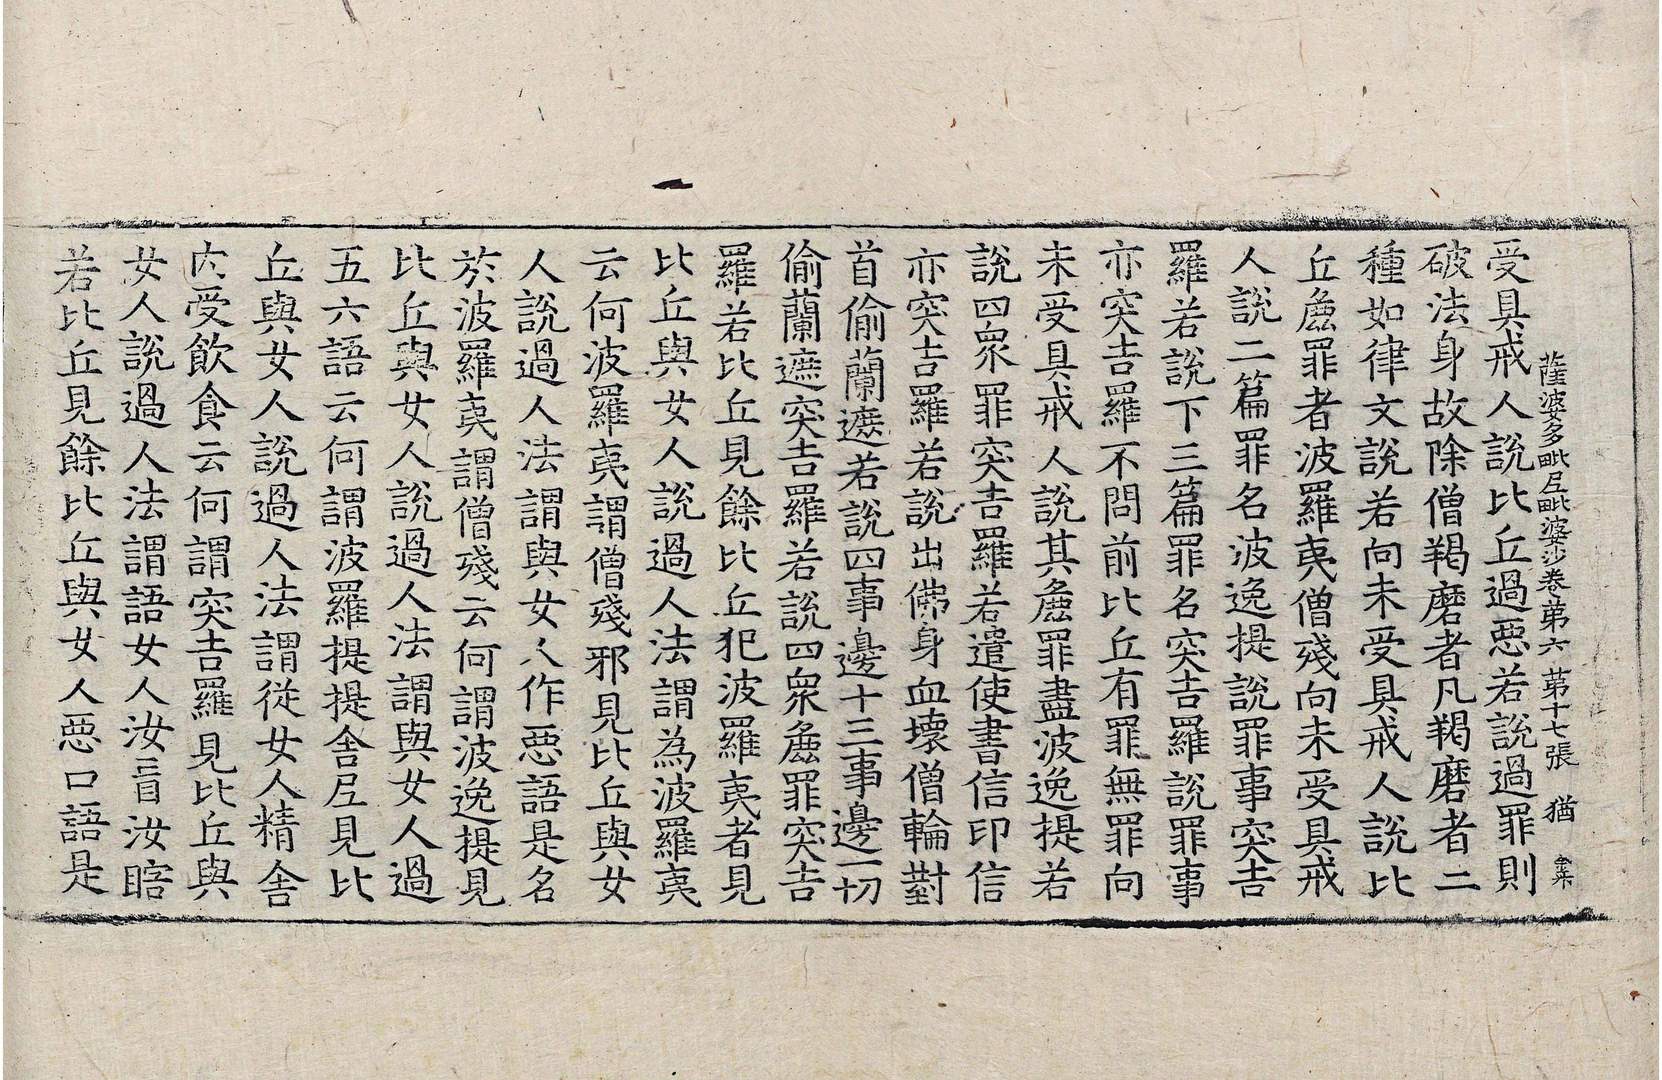 薩婆多毗尼毗婆沙卷第六 第十七張 猶
受具戒人說比丘過惡若說過罪則
破法身故除僧羯磨者凡羯磨者二
種如律文說若向未受具戒人說比
丘麁罪者波羅夷僧殘向未受具戒
人說二篇罪名波逸提說罪事突吉
羅若說下三篇罪名突吉羅說罪事
亦突吉羅不問前比丘有罪無罪向
未受具戒人說其麁罪盡波逸提若
說四眾罪突吉羅若遣使書信印信
亦突吉羅若說出佛身血壞僧輪對
首偷蘭遮若說四事邊十三事邊一切
偷蘭遮突吉羅若說四眾麁罪突吉
羅若比丘見餘比丘犯波羅夷者見
比丘與女人說過人法謂為波羅夷
云何波羅夷謂僧殘邪見比丘與女
人說過人法謂與女人作惡語是名
於波羅夷謂僧殘云何謂波逸提見
比丘與女人說過人法謂與女人過
五六語云何謂波羅提提舍尼見比
丘與女人說過人法謂從女人精舍
內受飲食云何謂突吉羅見比丘與
女人說過人法謂語女人汝盲汝瞎
若比丘見餘比丘與女人惡口語是